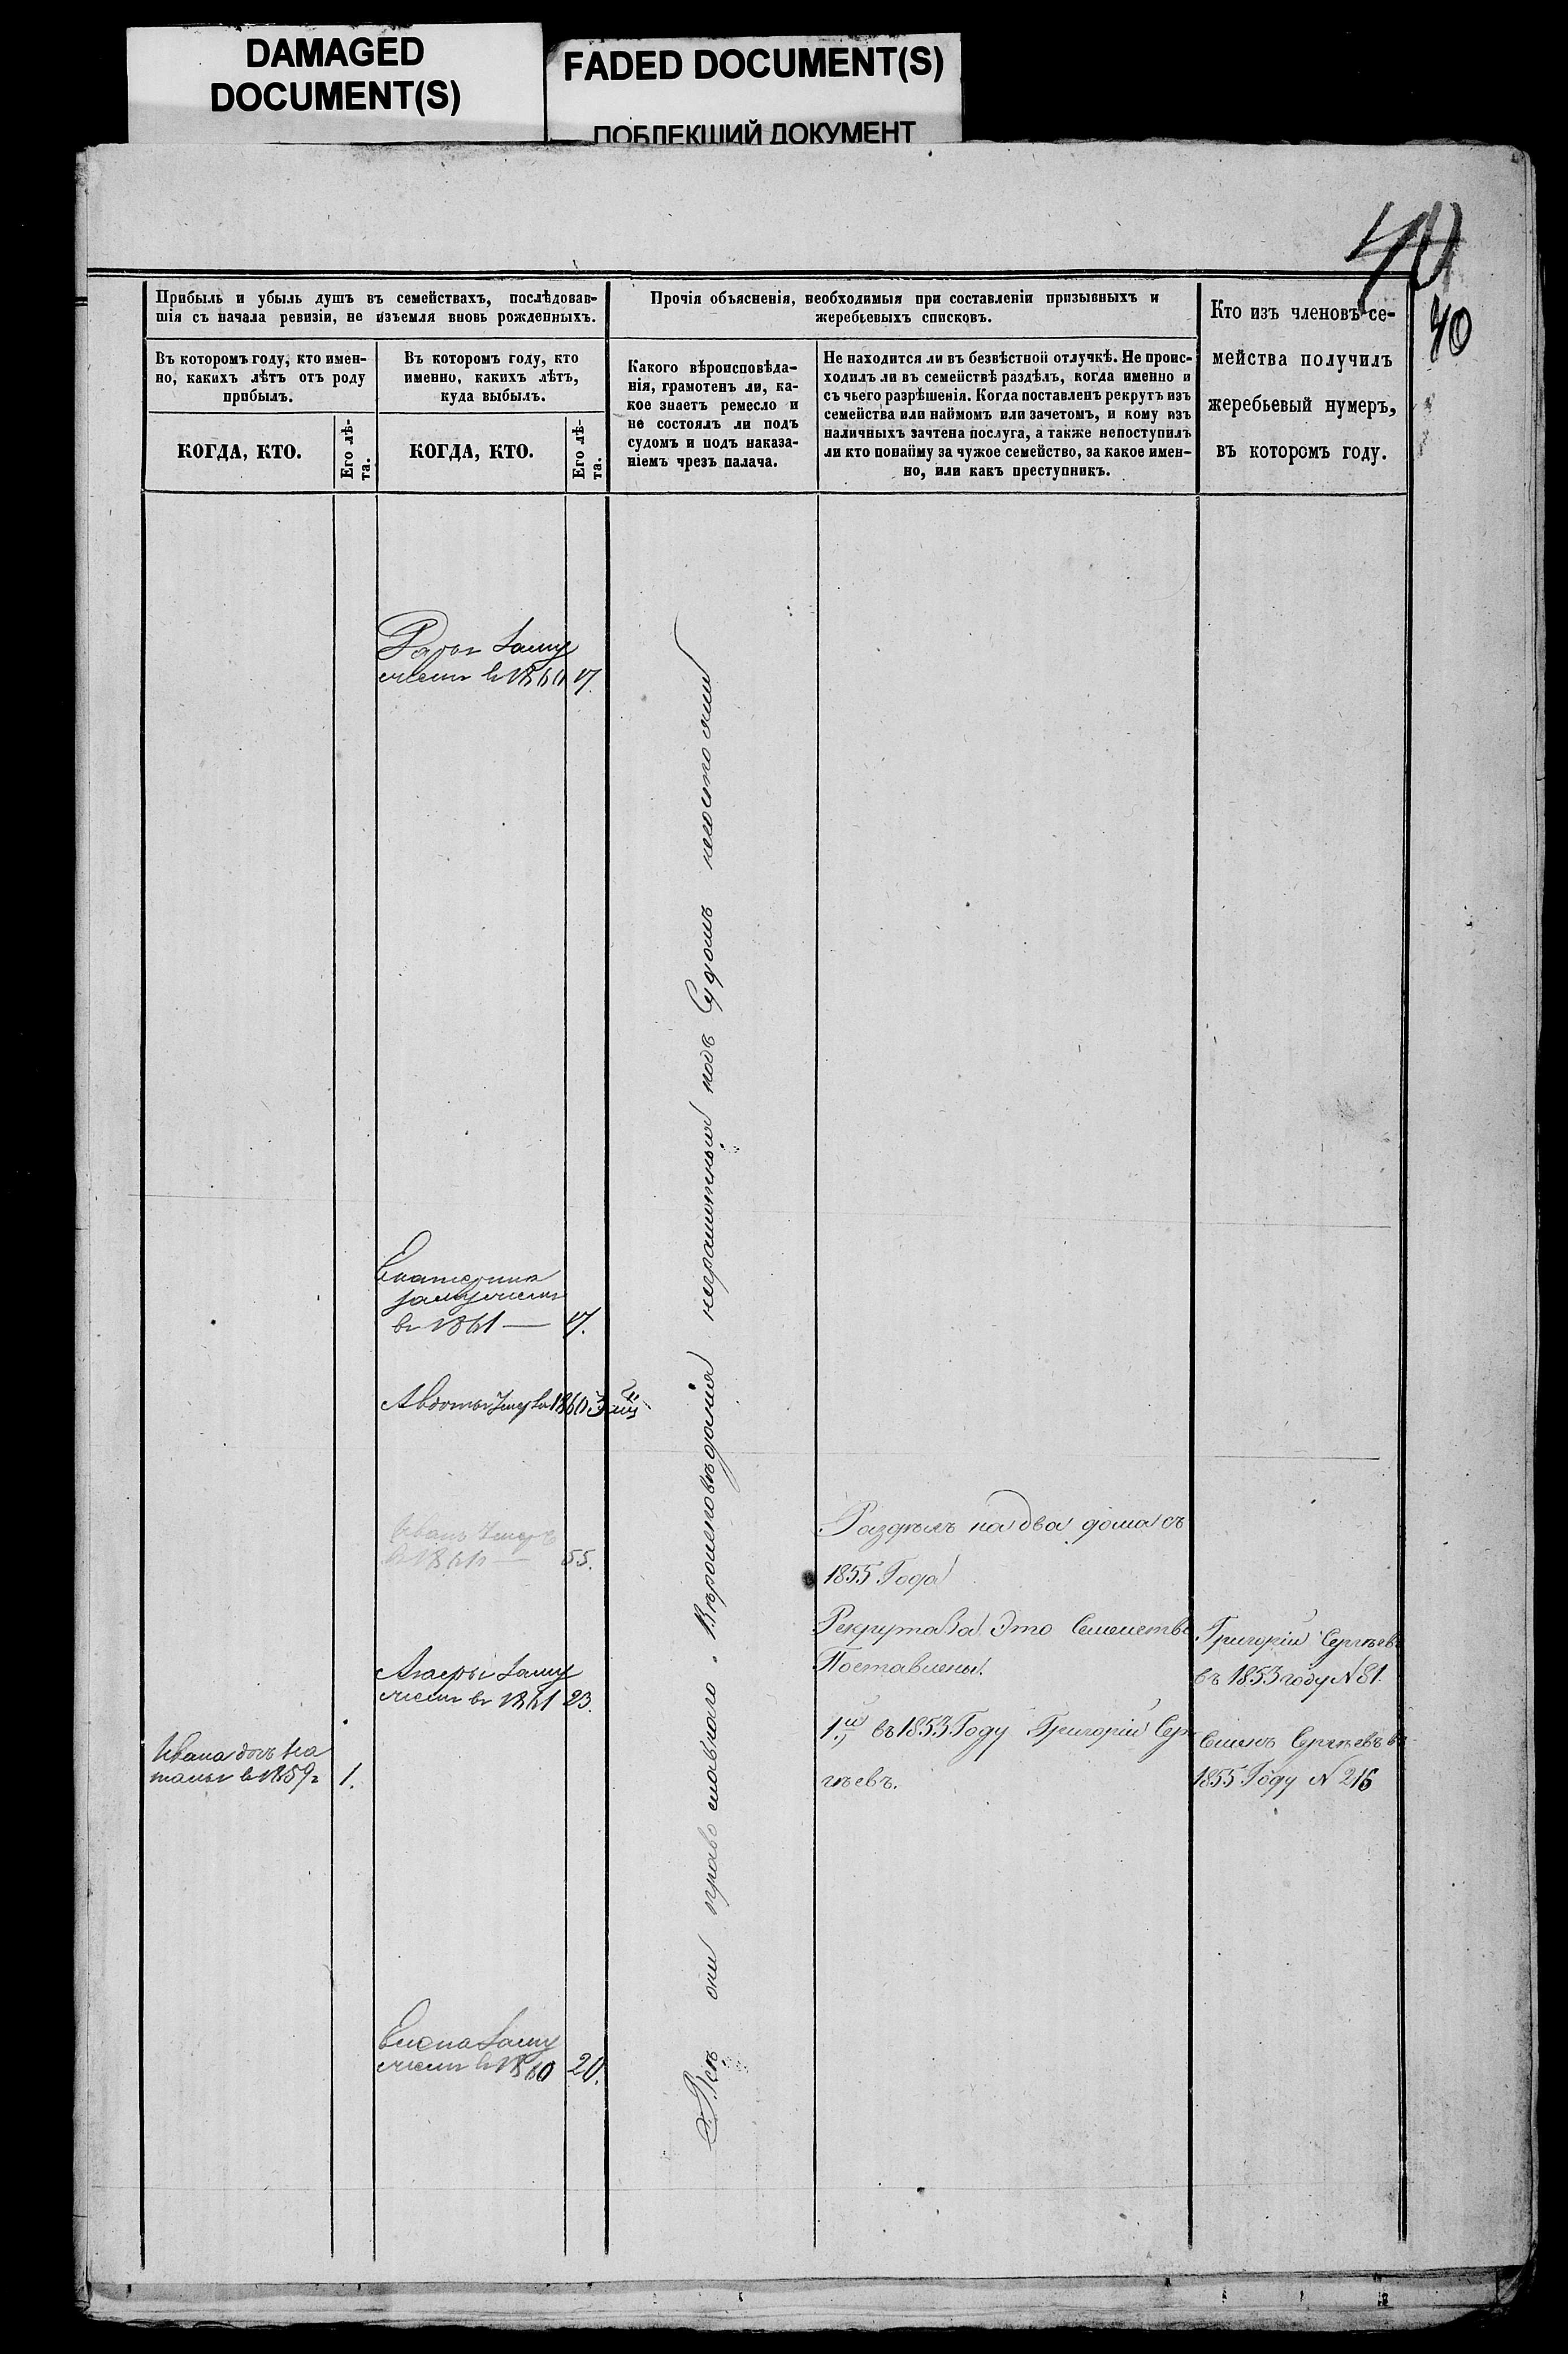 DAMAGED
DOCUMENT(S)
FADED DOCUMENT(S)
ПОБЛЕКШИЙ ДОКУМЕНТ
40
40
Прибыль и убыль душъ въ семействахъ, послѣдовав-
шія съ начала ревизіи, не изъемля вновь рожденныхъ.
Въ которомъ году, кто имен-
но, какихъ лѣтъ отъ роду
прибылъ.
КОГДА, КТО.
Его лѣ-
та.
Въ которомъ году, кто
именно, какихъ лѣтъ,
куда выбылъ.
КОГДА, КТО.
Его лѣ-
та.
Прочія объясненія, необходимыя при составленіи призывныхъ и
жеребьевыхъ списковъ.
Какого вѣроисповѣда-
нія, грамотенъ ли, ка-
кое знаетъ ремесло и
не состоялъ ли подъ
судомъ и подъ наказа-
ніемъ чрезъ палача.
Не находится ли въ безвѣстной отлучкѣ. Не проис-
ходилъ ли въ семействѣ раздѣлъ, когда именно и
съ чьего разрѣшенія. Когда поставленъ рекрутъ изъ
семейства или наймомъ или зачетомъ, и кому изъ
наличныхъ зачтена послуга, а также непоступилъ
ли кто понайму за чужое семейство, за какое имен-
но, или какъ преступникъ.
Кто изъ членовъ се-
мейства получилъ
жеребьевый нумеръ,
въ которомъ году.
заму
17.
Екатерина
замужемъ
въ 1861 — 17.
Авдотья 1860 3
Иванъ Умеръ
55.
заму
жемъ въ 1861 23.
Ивана дочь На
талья въ 1859г 1.
Елена заму
жемъ въ 1860 20.
Всѣ они православнаго Вѣроисповѣданія неграмотныя подъ Судомъ несостояли
Раздѣлъ на два дома съ
1855 Года
Рекрута За Это Семейство
Поставлены.
1й въ 1853 Году Григорій Сер
гѣевъ.
Григорій Сергѣевъ
въ 1853 году N 81.
Семенъ Сергѣевъ въ
1855 Году N 216